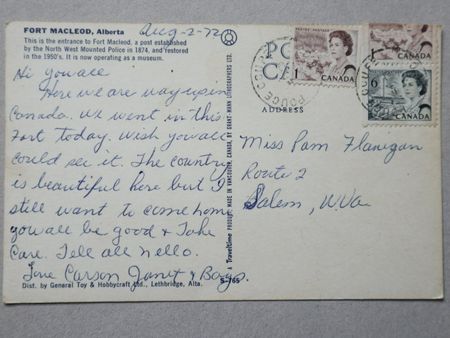 FORT MACLEOD, Alberta
This is the entrance to Fort Macleod, a post established
by the North West Mounted Police in 1874, and restored
in the 1950's. It is now operating as a museum.
Aug-2-72
Hi you all
Here we are way up in
Canada. We went in this
Fort today. Wish you all
could see it. The country
is beautiful here but I
still want to come home
you all be good & Take
Care. Tell all hello.
Love Carson Janet & Boys.
Dist. by General Toy & Hobbycraft Ltd., Lethbridge, Alta.
S-765
A Traveltime PRODUCT
MADE IN VANCOUVER, CANADA, BY GRANT-MANN LITHOGRAPHERS LTD.
POST
CARD
ADDRESS
POUCE COUPE
1
CANADA
POSTES POSTAGE
1
CANADA
6
CANADA
Miss Pam Flanigan
Route 2
Salem, W.Va.